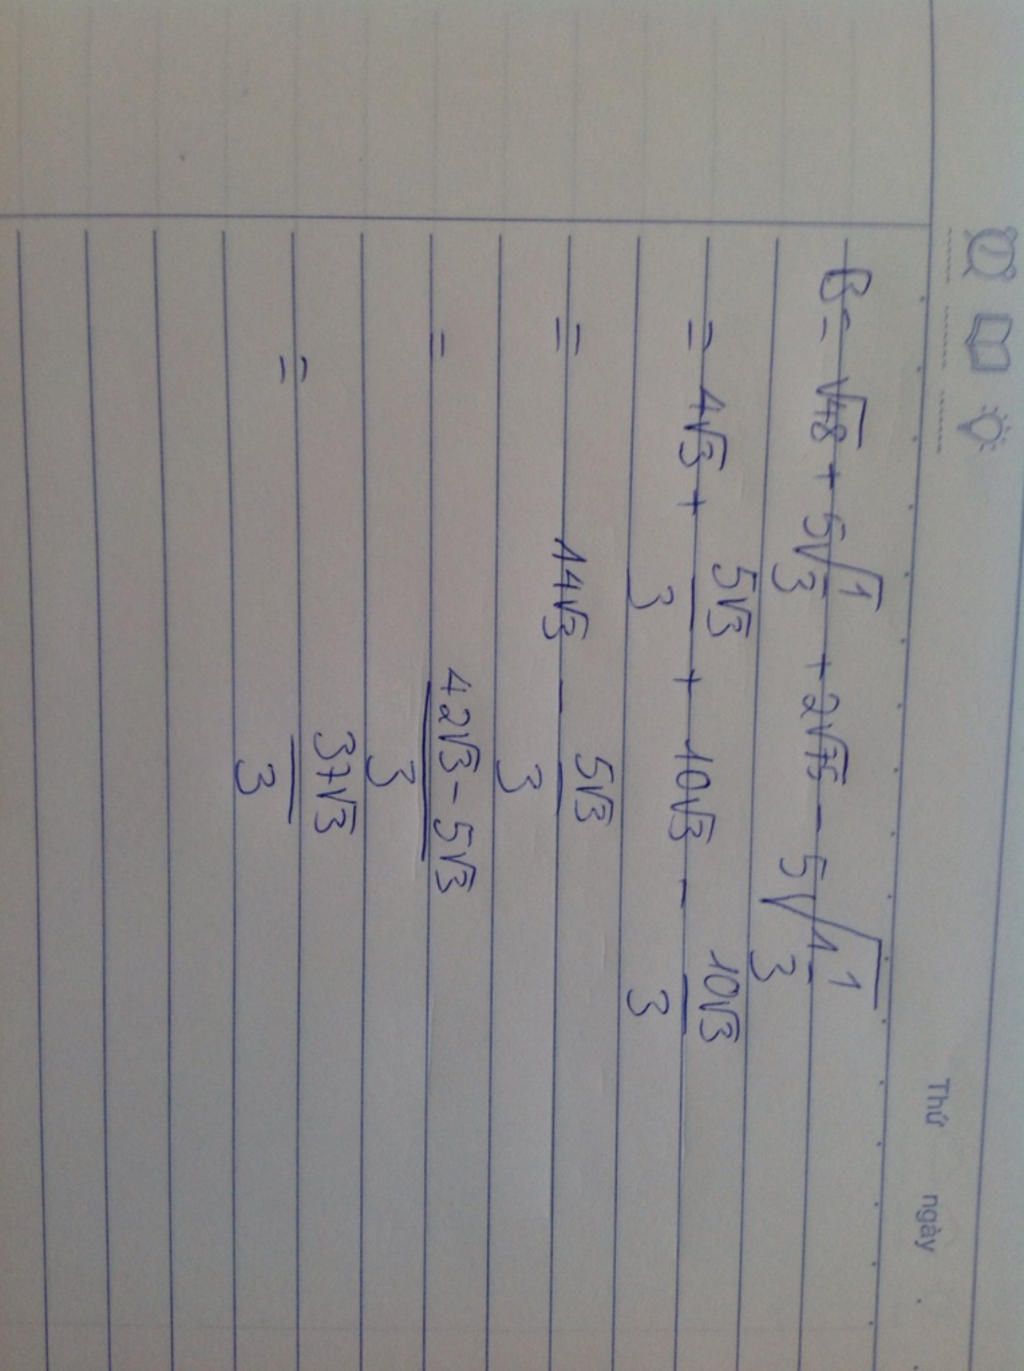 Thứ ngày
B = √48 + 5√(1/3) + 2√75 - 5√(1 1/3)
= 4√3 + 5√3/3 + 10√3 - 10√3/3
= 14√3 - 5√3/3
= (42√3 - 5√3)/3
= 37√3/3